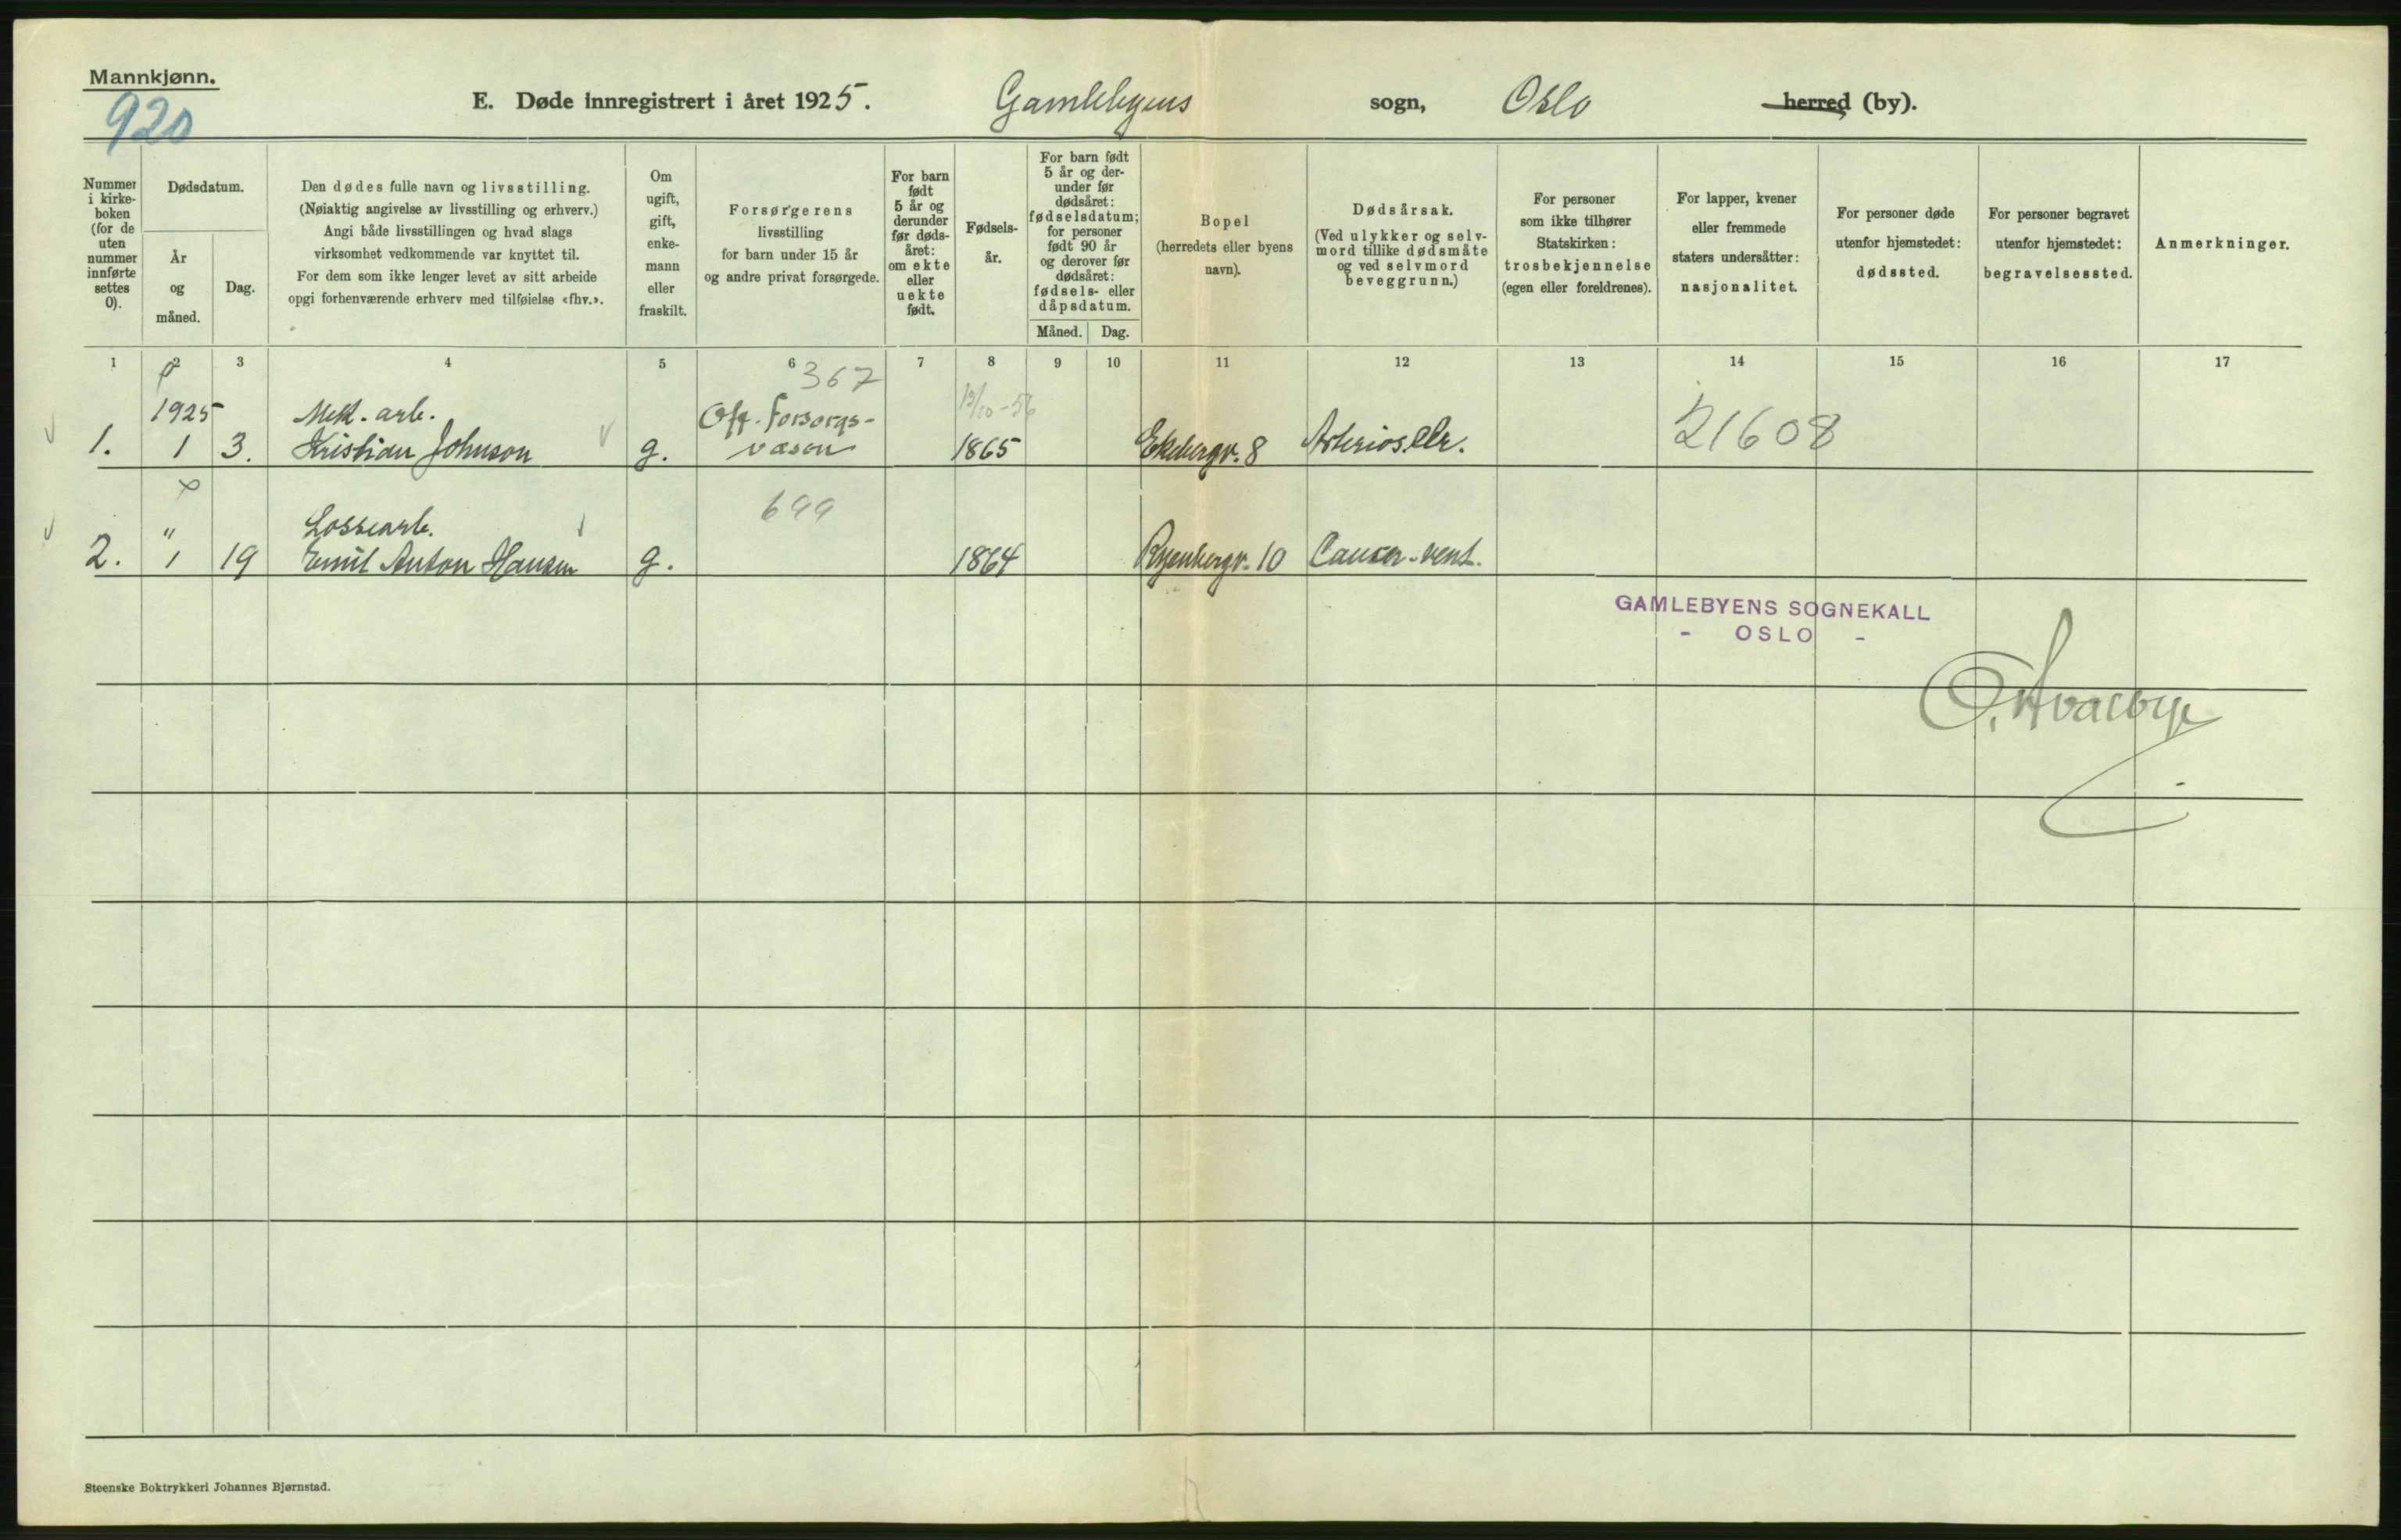 Mannkjønn.
920
E. Døde innregistrert i året 1925. Gamlebyens sogn, Oslo herred (by).
Nummer i kirke- boken (for de uten nummer innførte settes 0).
Dødsdatum.
År og måned.
Dag.
Den dødes fulle navn og livsstilling.
(Nøiaktig angivelse av livsstilling og erhverv.)
Angi både livsstillingen og hvad slags
virksomhet vedkommende var knyttet til.
For dem som ikke lenger levet av sitt arbeide
opgi forhenværende erhverv med tilføielse «fhv.».
Om ugift, gift, enke- mann eller fraskilt.
Forsørgerens
livsstilling
for barn under 15 år
og andre privat forsørgede.
For barn født 5 år og derunder før døds- året: om ekte eller uekte født.
Fødsels- år.
For barn født 5 år og der- under før dødsåret: fødselsdatum; for personer født 90 år og derover før dødsåret: fødsels- eller dåpsdatum.
Måned. Dag.
Bopel
(herredets eller byens
navn).
Dødsårsak.
(Ved ulykker og selv-
mord tillike dødsmåte
og ved selvmord
beveggrunn.)
For personer
som ikke tilhører
Statskirken:
trosbekjennelse
(egen eller foreldrenes).
For lapper, kvener
eller fremmede
staters undersåtter:
nasjonalitet.
For personer døde
utenfor hjemstedet:
dødssted.
For personer begravet
utenfor hjemstedet:
begravelsessted.
Anmerkninger.
1 2 3 4 5 6 7 8 9 10 11 12 13 14 15 16 17
367
1925 Mek. arb. Off. Forsorgs-
1. 1 3. Kristian Johnson g. væsen 1865 Ekebergv. 8 Arterioscler. 21608
699
" Lossearb.
2. 1 19 Emil Anton Hansen g. 1864 Ryenbergv. 10 Cancer. vent.
GAMLEBYENS SOGNEKALL
- OSLO -
Steenske Boktrykkeri Johannes Bjørnstad.